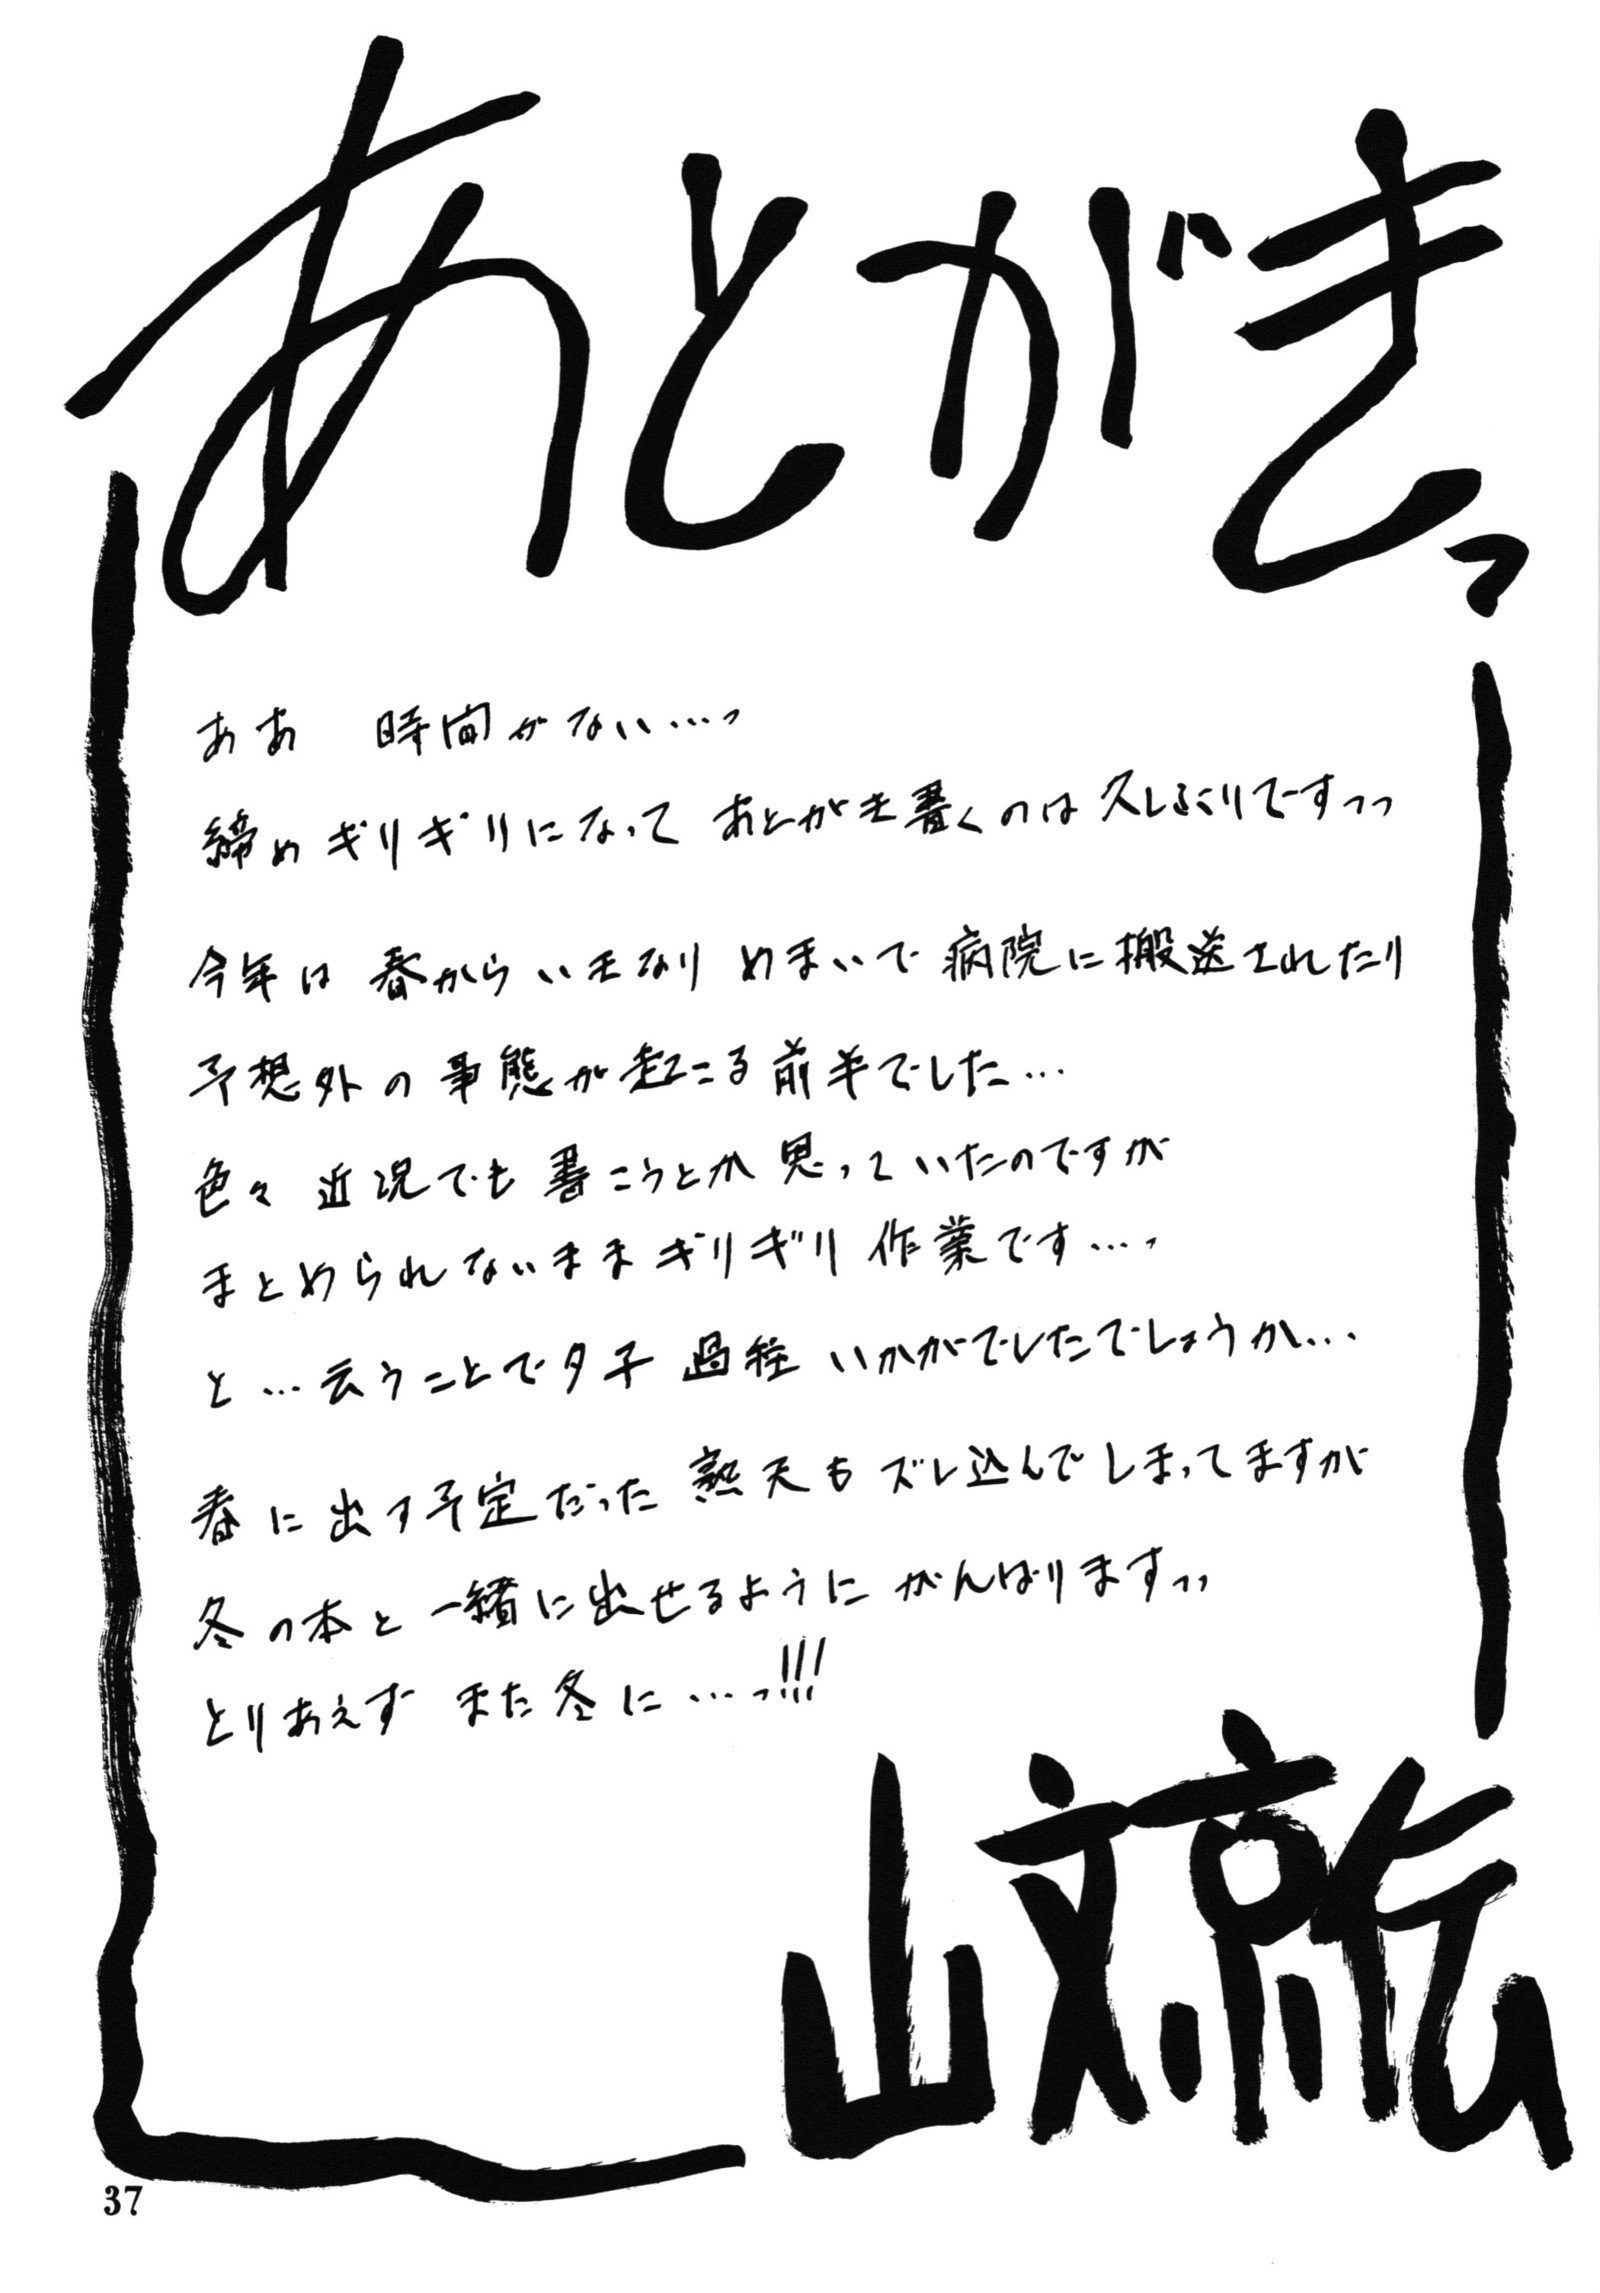 あとがきっ
ああ 時間がない…っ
締めギリギリになって あとがき書くのは 久しぶりですっっ
今年は 春から いきなり めまいで 病院に搬送されたり
予想外の事態が起こる前半でした…
色々 近況でも 書こうとか 思っていたのですが
まとめられないまま ギリギリ 作業です…っ
と…云うことで夕子 過程 いかがでしたでしょうか…
春に出す予定だった 熟天も ズレ込んでしまってますが
冬の本と 一緒に出せるように がんばりますっっ
とりあえず また冬に…っ!!!
山文京伝
37